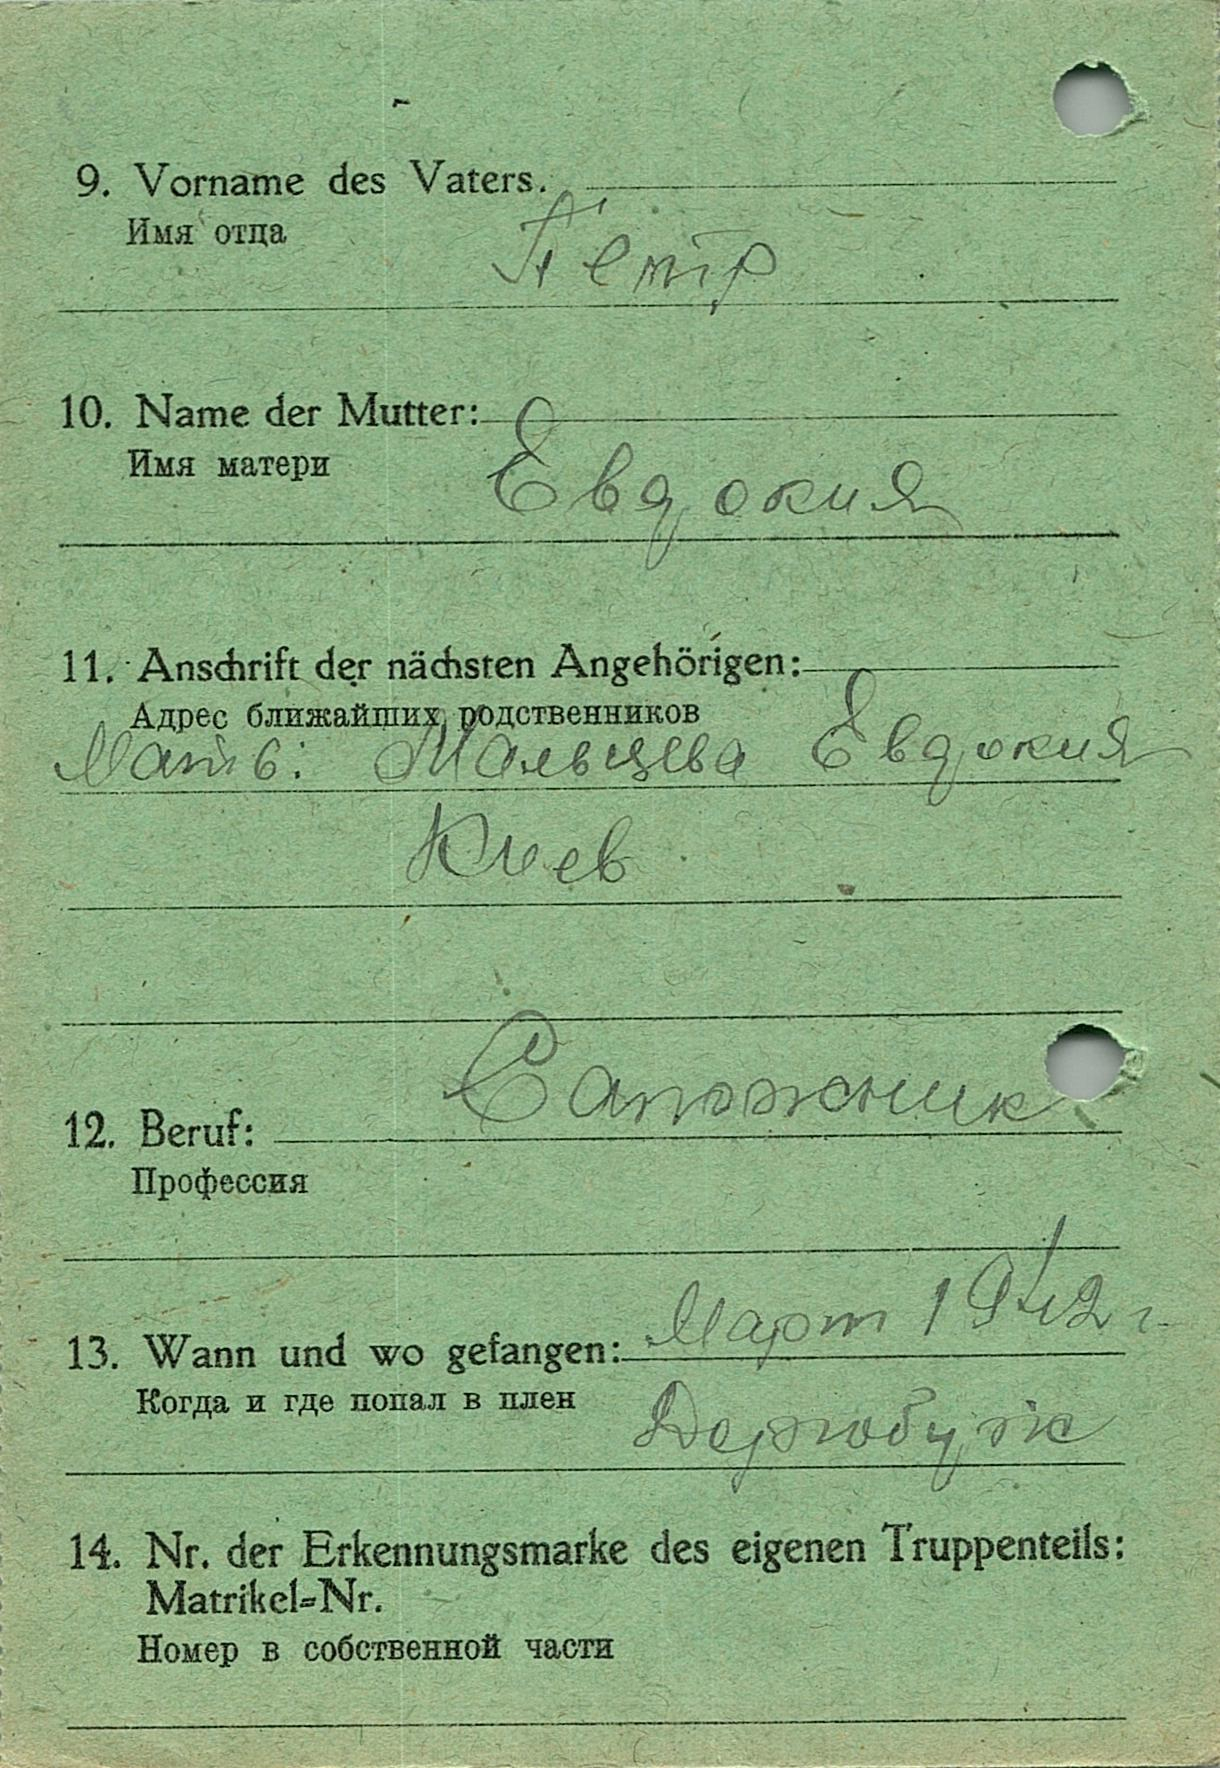 9. Vorname des Vaters.
Имя отца
Петр
10. Name der Mutter:
Имя матери
Евдокия
11. Anschrift der nächsten Angehörigen:
Адрес ближайших родственников
Мать: Мальцева Евдокия
Киев
Сапожник
12. Beruf:
Профессия
Март 1942 г
13. Wann und wo gefangen:
Когда и где попал в плен
Дорогобуж
14. Nr. der Erkennungsmarke des eigenen Truppenteils:
Matrikel=Nr.
Номер в собственной части